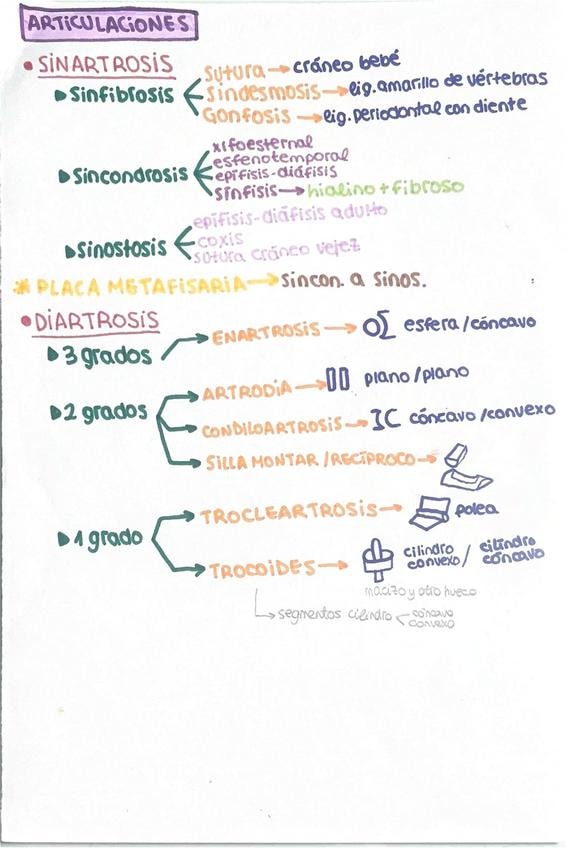 ARTICULACIONES
• SINARTROSIS
Sinfibrosis
Sutura → cráneo bebé
Sindesmosis → lig. amarillo de vértebras
Gonfosis → lig. periodontal con diente
Sincondrosis
xifoesternal
esfenotemporal
epífisis-diáfisis
sínfisis → hialino + fibroso
Sinostosis
epífisis-diáfisis adulto
coxis
sutura cráneo vejez
* PLACA METAFISARIA → sincon. a sinos.
• DIARTROSIS
3 grados
ENARTROSIS → esfera/cóncavo
2 grados
ARTRODIA → plano/plano
CONDILOARTROSIS → cóncavo/convexo
SILLA MONTAR/RECÍPROCO →
1 grado
TROCLEARTROSIS → polea
TROCOIDES → cilindro convexo / cilindro cóncavo
macizo y otro hueco
segmentos cilindro
cóncavo
convexo